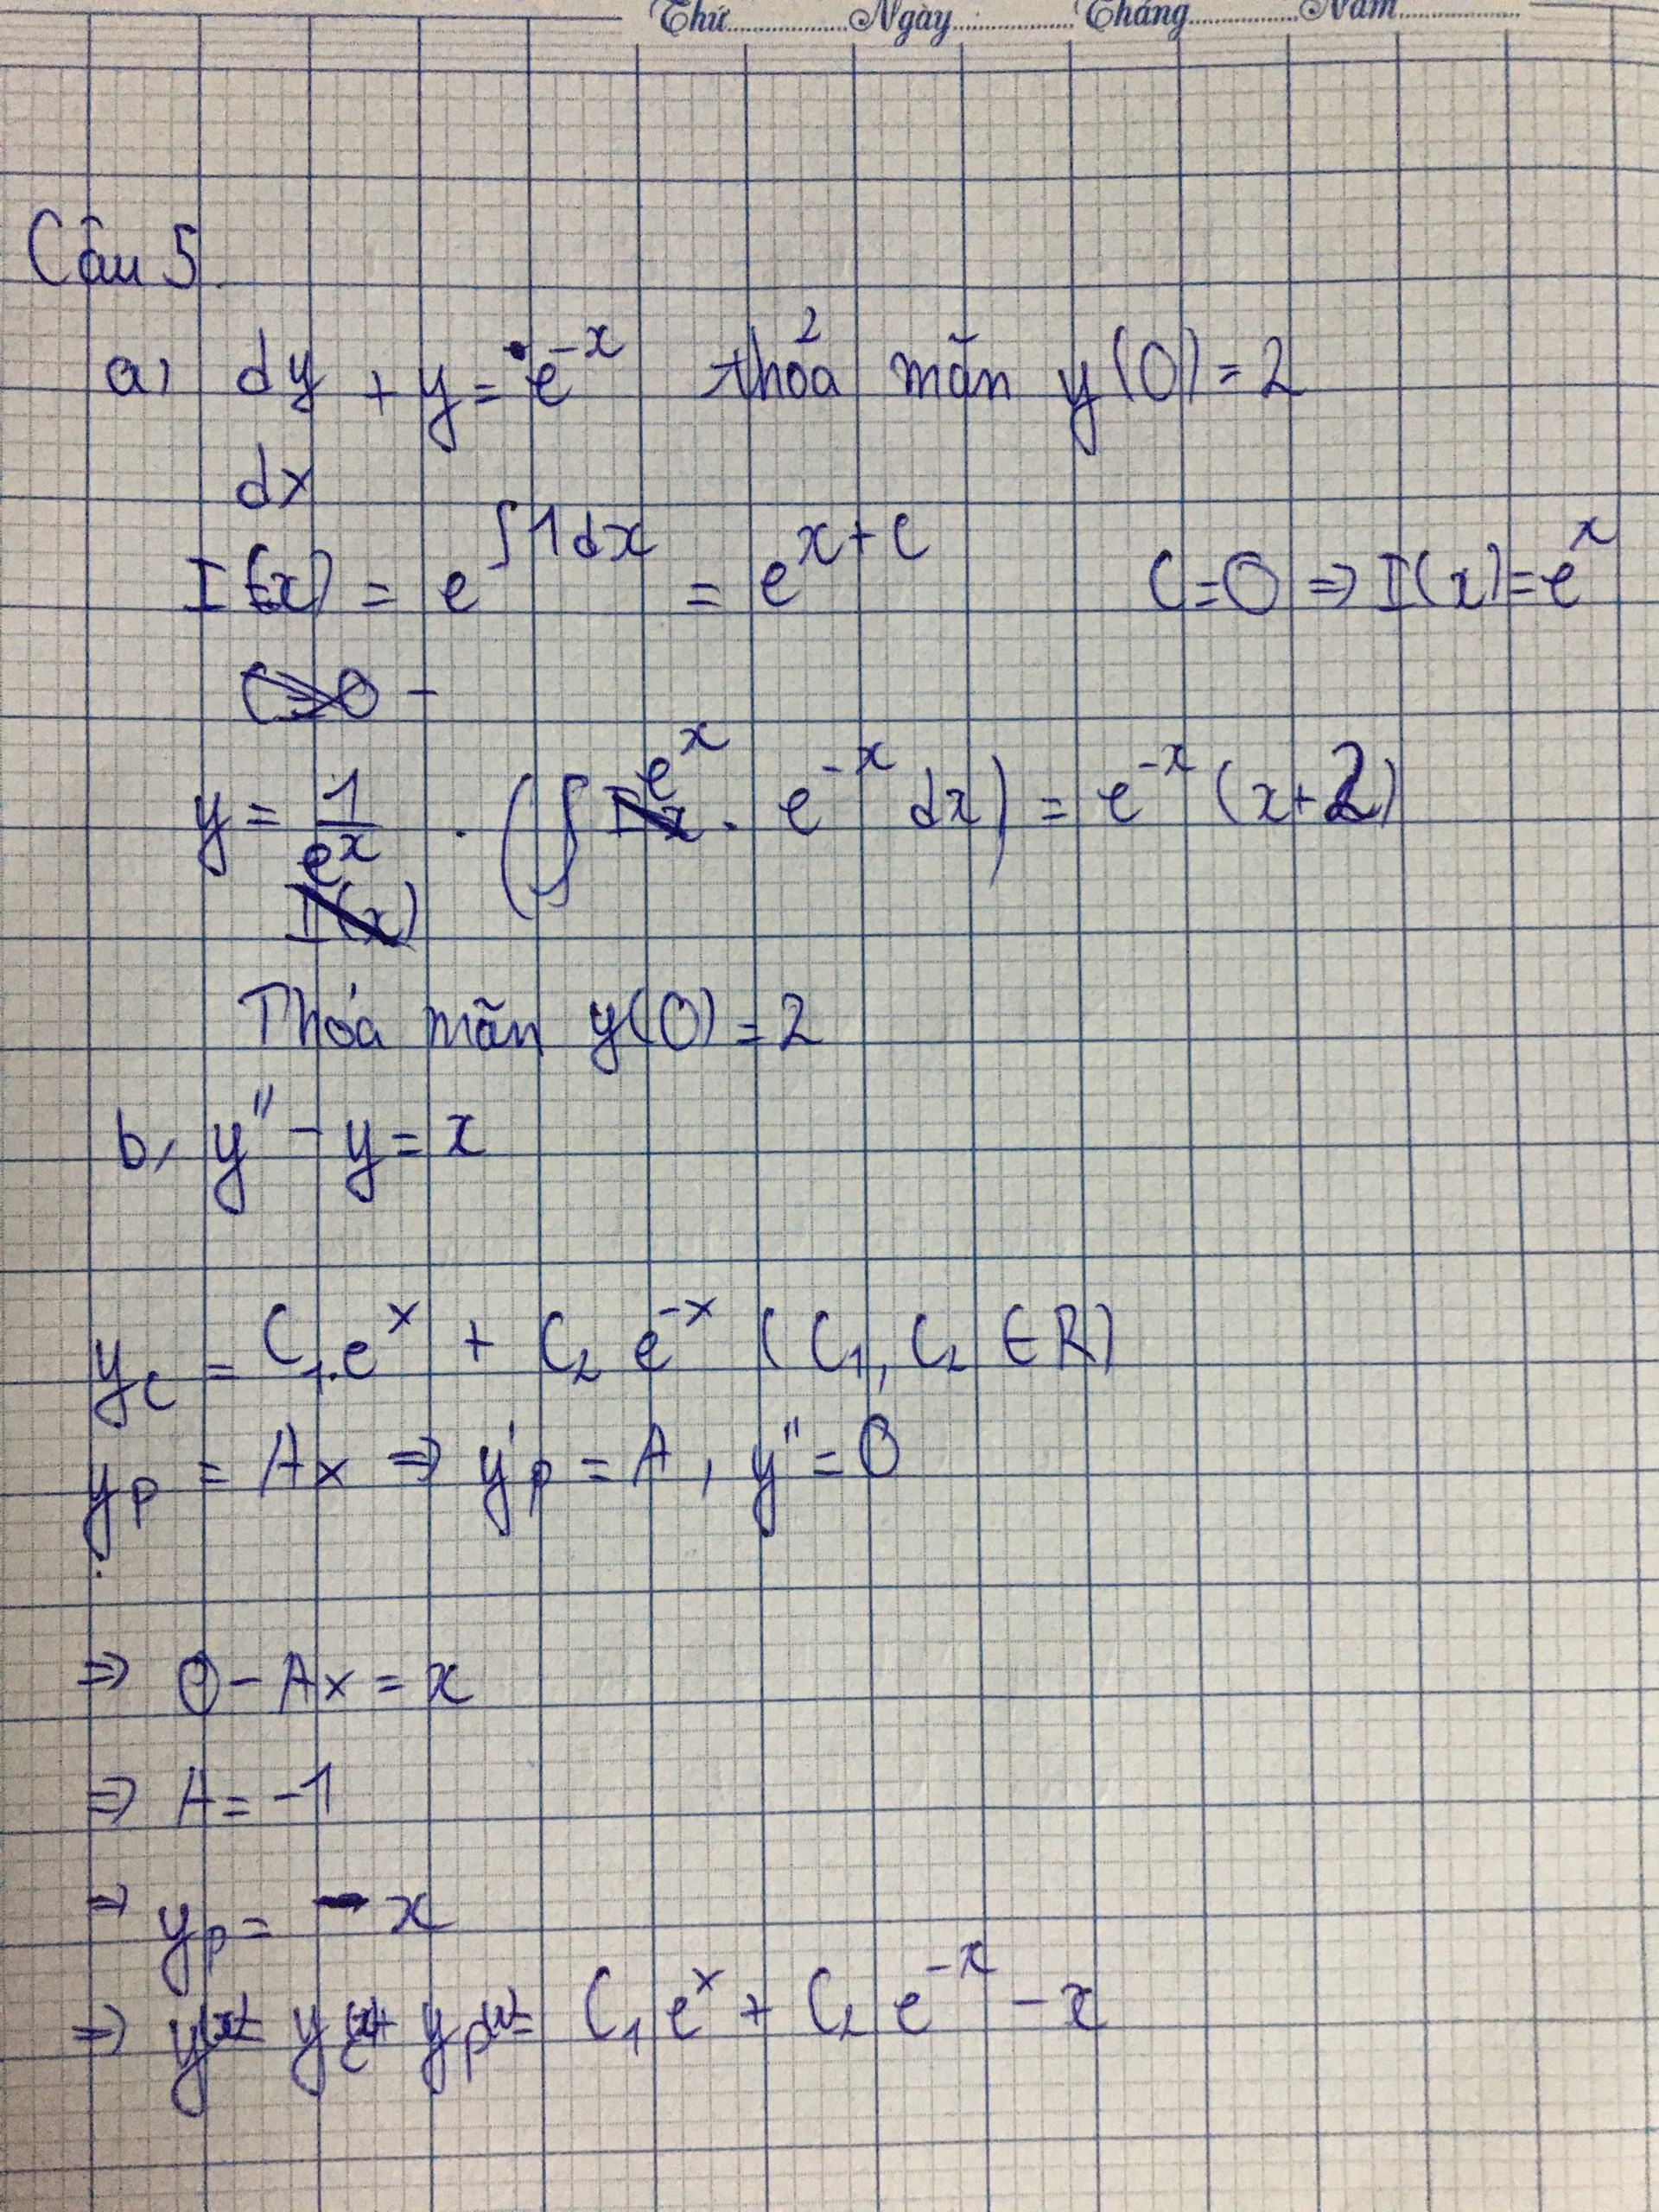 Thứ............Ngày............Tháng............Năm............
Câu 5.
a, dy/dx + y = e^-x thỏa mãn y(0) = 2
I(x) = e^∫1dx = e^x+c C=0 ⇒ I(x) = e^x
C=0 -
y = 1/e^x I(x) . (∫ e^x . e^-x dx) = e^-x (x+2)
Thỏa mãn y(0) = 2
b, y" - y = x
y_c = C₁.e^x + C₂ e^-x (C₁, C₂ ∈ R)
y_p = Ax ⇒ y'_p = A, y" = 0
⇒ 0 - Ax = x
⇒ A = -1
⇒ y_p = - x
⇒ y(x) = y_c(x) + y_p(x) = C₁ e^x + C₂ e^-x - x